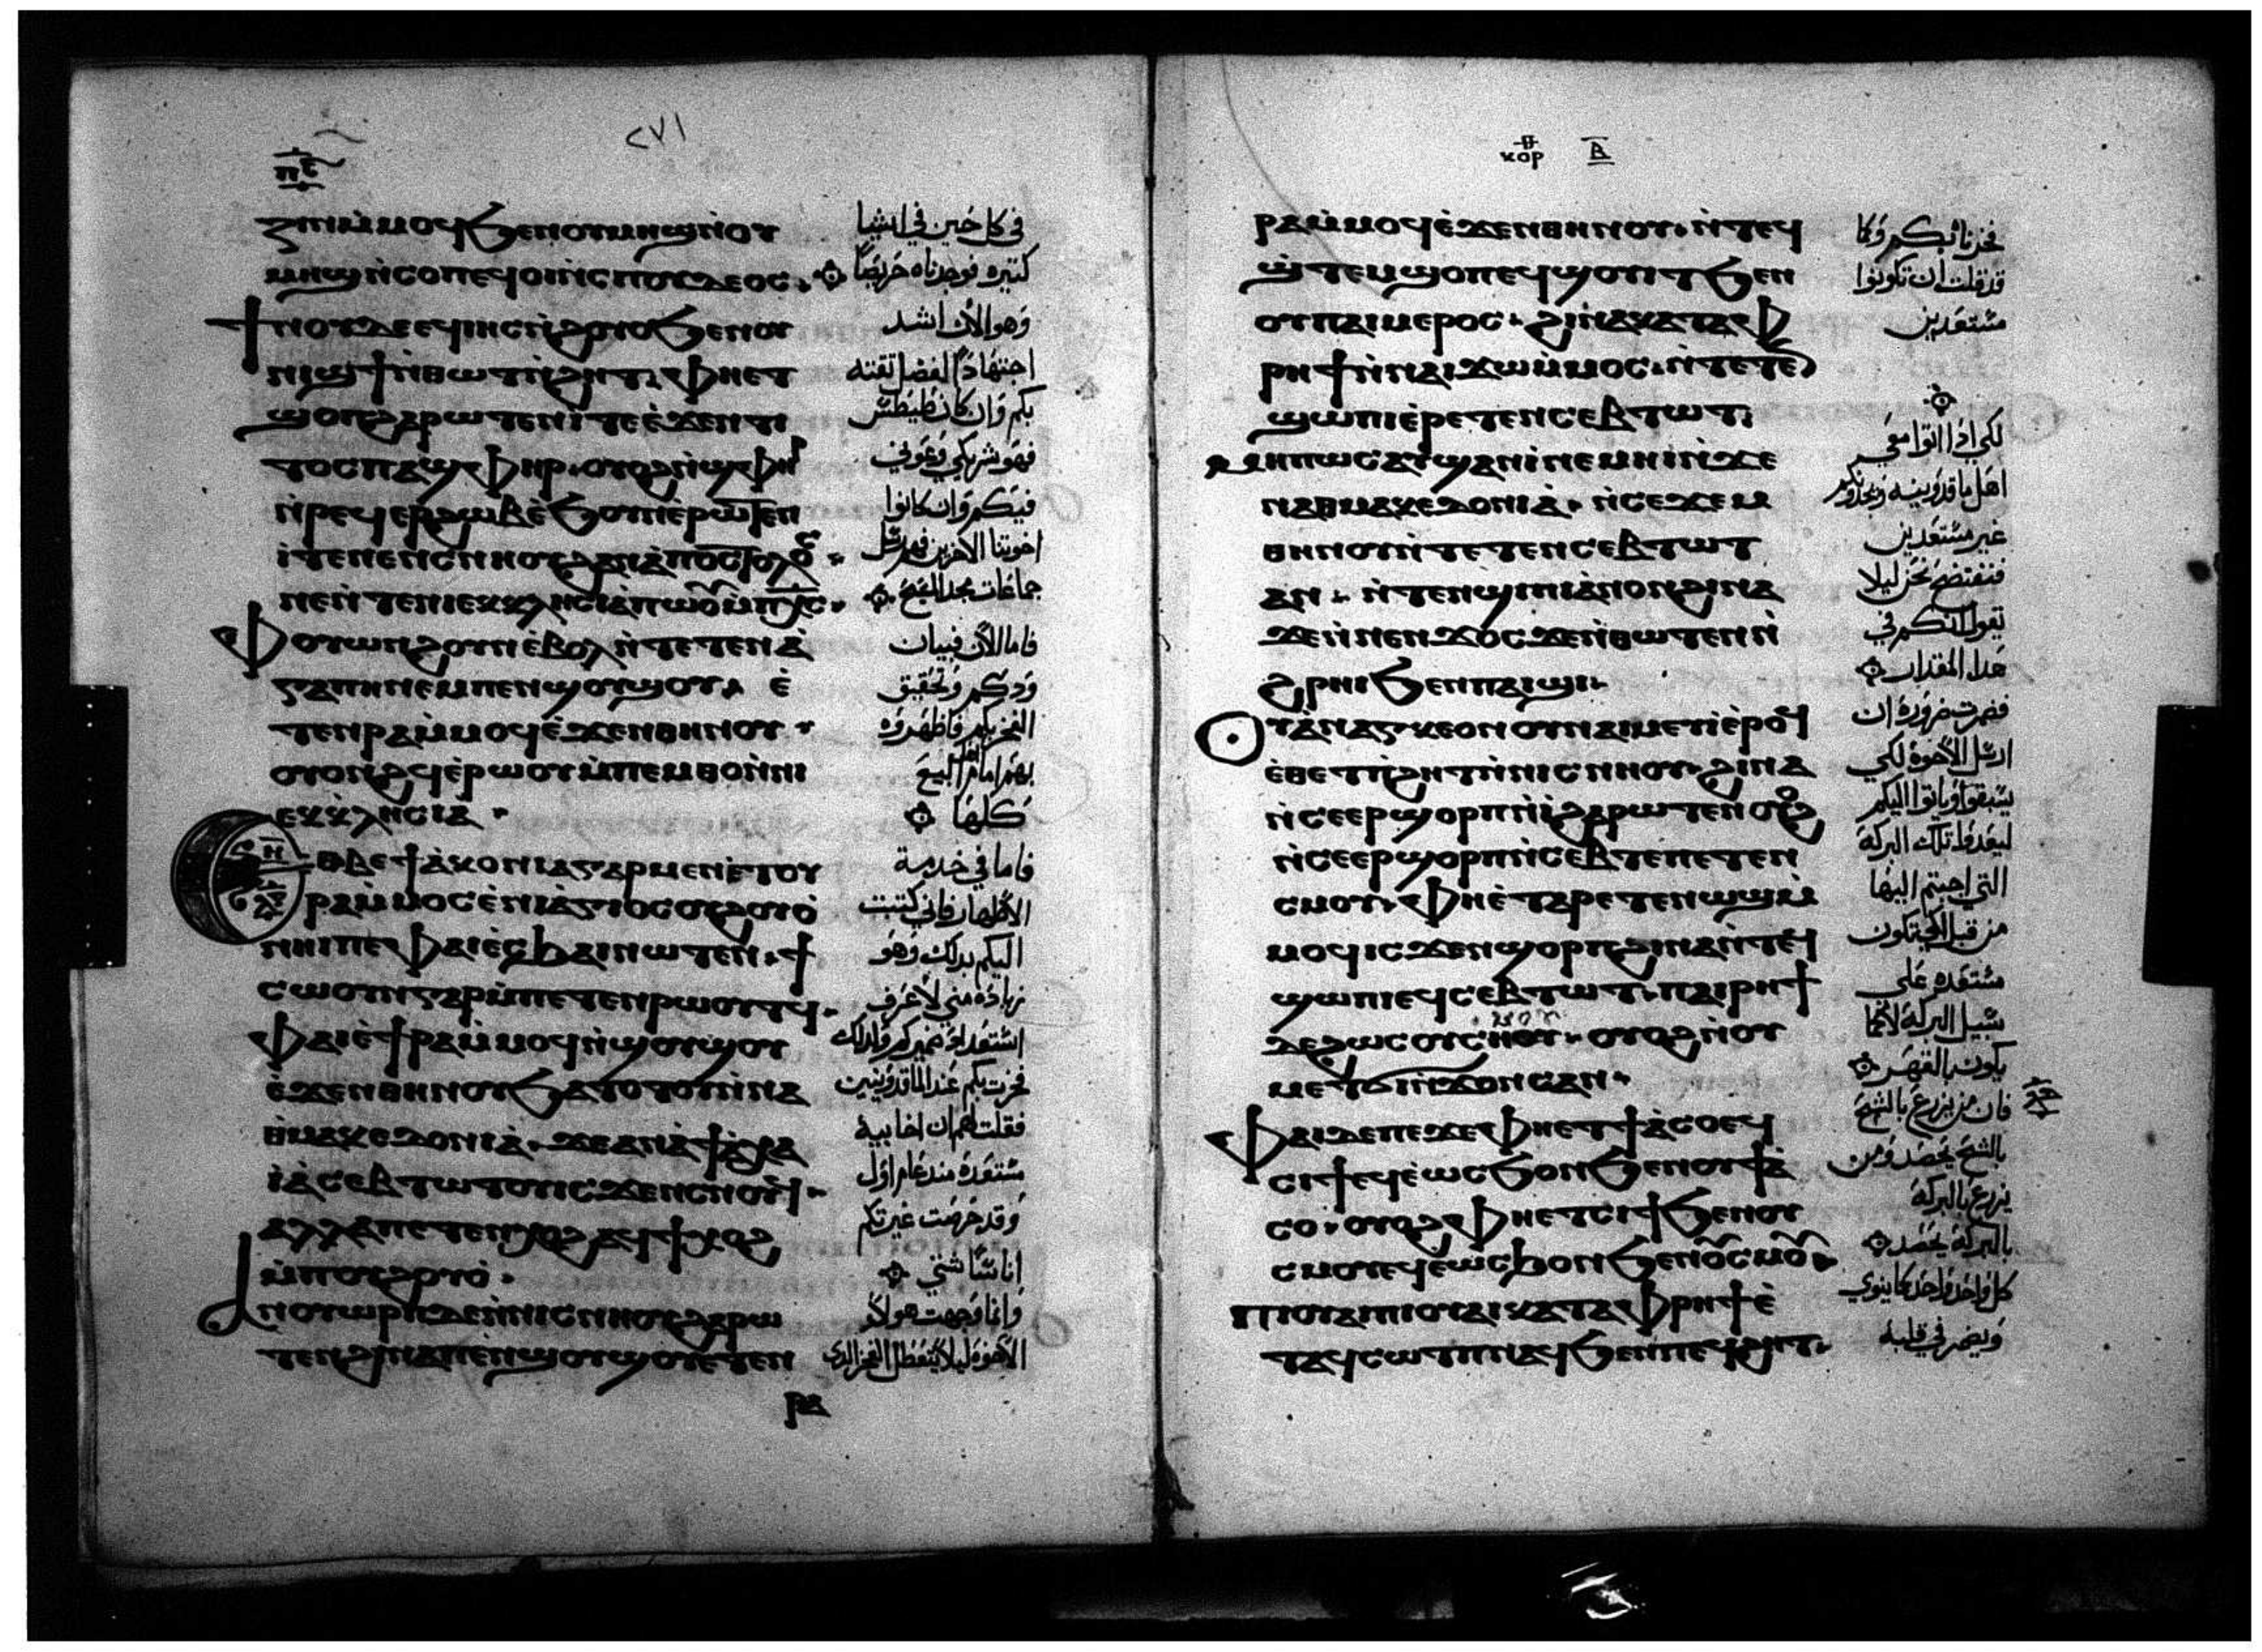 ⲡⲉ
٢٧١
ⲍⲙⲡⲙ̀ⲙⲟϥ ϧⲉⲛ ⲟⲩⲙⲏϣ ⲛ̀ⲟⲩ
ⲙⲏϣ ⲛ̀ⲥⲟⲡ ⲉϥⲟⲓ ⲛ̀ⲥⲡⲟⲩⲇⲉⲟⲥ
ϯⲛⲟⲩ ⲇⲉ ⲉϥⲓⲏⲥ ⲛ̀ϩⲟⲩⲟ ϧⲉⲛ ⲟⲩ
ⲛⲓϣϯ ⲛ̀ⲑⲱⲧ ⲛ̀ϩⲏⲧ ⲫⲏ ⲉⲧ
ϣⲟⲡ ϩⲁⲣⲱⲧⲉⲛ ⲓⲧⲉ ⲉ̀ϫⲉⲛ ⲧⲓ
ⲧⲟⲥ ⲡⲁϣⲫⲏⲣ ⲟⲩⲟϩ ⲛ̀ϣⲫⲏⲣ
ⲛ̀ⲣⲉϥⲉⲣϩⲱⲃ ⲉ̀ϧⲟⲩⲛ ⲉ̀ⲣⲱⲧⲉⲛ
ⲓⲧⲉ ⲛⲉⲛⲥⲛⲏⲟⲩ ϩⲁⲛⲁ̀ⲡⲟⲥⲧⲟⲗⲟⲥ
ⲛⲉ ⲛ̀ⲧⲉ ⲛⲓⲉⲕⲕⲗⲏⲥⲓⲁ̀ ⲡⲱⲟⲩ ⲙ̀ⲡⲭⲥ
ⲫⲟⲩⲱⲛϩ ⲟⲩⲛ ⲉ̀ⲃⲟⲗ ⲛ̀ⲧⲉ ⲧⲉⲛⲁ̀
ⲅⲁⲡⲏ ⲛⲉⲙ ⲡⲉⲛϣⲟⲩϣⲟⲩ ⲉ̀
ⲧⲉⲛⲣⲁ ⲙ̀ⲙⲟϥ ⲉ̀ϫⲉⲛ ⲑⲏⲛⲟⲩ
ⲟⲩⲟⲛϩϥ ⲉ̀ⲣⲱⲟⲩ ⲙ̀ⲡⲉⲙⲑⲟ ⲛ̀ⲛⲓ
ⲉⲕⲕⲗⲏⲥⲓⲁ̀
ⲉⲑⲃⲉ ϯⲇⲓⲁⲕⲟⲛⲓⲁ ⲅⲁⲣ ⲙⲉⲛ ⲉ̀ⲧⲟⲩ
ⲣⲁ ⲙ̀ⲙⲟⲥ ⲉ̀ⲛⲓⲁ̀ⲅⲓⲟⲥ ⲟⲩϩⲟⲩⲟ̀
ⲛⲏⲓ ⲡⲉ ⲫⲁⲓ ⲉ̀ⲥϧⲁⲓ ⲛⲱⲧⲉⲛ ϯ
ⲥⲱⲟⲩⲛ ⲅⲁⲣ ⲙ̀ⲡⲉⲧⲉⲛⲣⲱⲟⲩⲧϥ
ⲫⲁⲓ ⲉ̀ϯⲣⲁ ⲙ̀ⲙⲟϥ ⲛ̀ϣⲟⲩϣⲟⲩ
ⲉ̀ϫⲉⲛ ⲑⲏⲛⲟⲩ ϧⲁⲧⲟⲧⲟⲩ ⲛ̀ⲛⲁ
ⲑⲙⲁⲕⲉⲇⲟⲛⲓⲁ̀ ϫⲉ ⲁⲛⲁ̀ ϯⲁ̀ⲭⲁ
ⲓⲁ̀ ⲥⲉⲃⲧⲱⲧ ⲟⲩ ⲓⲥϫⲉⲛ ⲥⲛⲟⲩϥ
ⲁⲗⲗⲁ ⲡⲉⲧⲉⲛⲭⲟϩ ⲁϥϯⲭⲟϩ
ⲙ̀ⲡⲟⲩϩⲟⲩⲟ̀
ⲁⲓⲟⲩⲱⲣⲡ ⲇⲉ ⲛ̀ⲛⲓⲥⲛⲏⲟⲩ ϩⲁⲣⲱ
ⲧⲉⲛ ϩⲓⲛⲁ ⲡⲉⲛϣⲟⲩϣⲟⲩ ⲉⲧⲉⲛ
ⲣⲁ
في كل حين في اشيا
كتيره فوجدناه حريصا
وهو الان اشد
اجتهادًا لفضل تقته
بكم وان كان طيطس
فهو شريكي وعوني
فيكم وان كانوا
اخوتنا الاخرين فهم رسل
جماعات مجد المسيح
فاما الان فبيان
ودكم وتحقيق
الفخر بكم فاظهروه
بهم امام اهل البيع
كلها
فاما في خدمة
الاطهار فاني كتبت
اليكم بدلك وهو
زياده مني لاعرف
استعداد ضميركم ولدلك
فخرت بكم عند الماقدونيين
فقلت لهم ان اخاييه
مستعدة مند عام اول
وقد حرصت غيرتكم
اناسًا شتي
وانا وجهت هولاء
الاخوة ليلا يتعطل الفخر الدي
ⲕⲟⲣ ⲃ
ⲣⲁ ⲙ̀ⲙⲟϥ ⲉ̀ϫⲉⲛ ⲑⲏⲛⲟⲩ ⲛ̀ⲧⲉϥ
ϣ̀ⲧⲉⲙϣⲱⲡⲓ ⲉϥϣⲟⲩⲓⲧ ϧⲉⲛ
ⲟⲩⲡⲁⲓⲙⲉⲣⲟⲥ ϩⲓⲛⲁ ⲕⲁⲧⲁ ⲫ
ⲣⲏϯ ⲛ̀ⲛⲁⲓϫⲱ ⲙ̀ⲙⲟⲥ ⲛ̀ⲧⲉⲧⲉⲛ
ϣⲱⲡⲓ ⲉ̀ⲣⲉⲧⲉⲛⲥⲉⲃⲧⲱⲧ
ⲙⲏⲡⲱⲥ ⲁⲩϣⲁⲛⲓ̀ ⲛⲉⲙⲏⲓ ⲛ̀ϫⲉ
ⲛⲁⲑⲙⲁⲕⲉⲇⲟⲛⲓⲁ̀ ⲛ̀ⲥⲉϫⲉⲙ
ⲑⲏⲛⲟⲩ ⲛ̀ⲧⲉⲧⲉⲛⲥⲉⲃⲧⲱⲧ
ⲁⲛ ⲛ̀ⲧⲉⲛϣⲓⲡⲓ ⲁ̀ⲛⲟⲛ ϩⲓⲛⲁ
ϫⲉ ⲛ̀ⲛⲉⲛϫⲟⲥ ϫⲉ ⲛ̀ⲑⲱⲧⲉⲛ ⲛ̀
ϩⲣⲏⲓ ϧⲉⲛ ⲡⲁⲓϣⲓ
ⲟⲩⲁⲛⲁⲅⲕⲉⲟⲛ ⲟⲩⲛ ⲁⲓⲙⲉⲩⲓ ⲉ̀ⲣⲟϥ
ⲉ̀ⲑⲉⲧ ⲡϩⲏⲧ ⲛ̀ⲛⲓⲥⲛⲏⲟⲩ ϩⲓⲛⲁ
ⲛ̀ⲥⲉⲉⲣϣⲟⲣⲡ ⲛ̀ⲓ̀ ϩⲁⲣⲱⲧⲉⲛ ⲟⲩⲟϩ
ⲛ̀ⲥⲉⲉⲣϣⲟⲣⲡ ⲛ̀ⲥⲉⲃⲧⲉ ⲡⲉⲧⲉⲛ
ⲥⲙⲟⲩ ⲫⲏ ⲉ̀ⲧⲁⲣⲉⲧⲉⲛⲱϣ ⲙ̀
ⲙⲟϥ ⲓⲥϫⲉⲛ ϣⲟⲣⲡ ϩⲓⲛⲁ ⲛ̀ⲧⲉϥ
ϣⲱⲡⲓ ⲉϥⲥⲉⲃⲧⲱⲧ ⲡⲁⲓⲣⲏϯ
ϫⲉ ϩⲱⲥ ⲟⲩⲥⲙⲟⲩ ⲟⲩⲟϩ ⲛ̀ⲟⲩ
ⲙⲉⲧϭⲓⲛϫⲟⲛⲥ ⲁⲛ
ⲫⲁⲓ ⲇⲉ ⲡⲉ ϫⲉ ⲫⲏ ⲉⲧϯⲁ̀ⲥⲟ ⲉϥ
ⲥⲓϯ ⲉϥⲉ̀ⲱⲥϧ ⲟⲛ ϧⲉⲛ ⲟⲩϯⲁ̀
ⲥⲟ ⲟⲩⲟϩ ⲫⲏ ⲉⲧⲥⲓϯ ϧⲉⲛ ⲟⲩ
ⲥⲙⲟⲩ ⲉϥⲉ̀ⲱⲥϧ ⲟⲛ ϧⲉⲛ ⲟⲩⲥⲙⲟⲩ
ⲡⲓⲟⲩⲁⲓ ⲡⲓⲟⲩⲁⲓ ⲕⲁⲧⲁ ⲫⲣⲏϯ ⲉ̀
ⲧⲁϥⲥⲱⲧⲡ ⲛⲁϥ ϧⲉⲛ ⲡⲉϥϩⲏⲧ
فخرنا بكم وكما
قد قلت ان تكونوا
مستعدين
لكي ادا اتوا معي
اهل ماقدونيه ويجدونكم
غير مستعدين
فنفتضح نحن ليلا
نقول انكم في
هدا المقدار
فصرت ضروره ان
ارسل الاخوة لكي
يسبقوا وياتوا اليكم
ليعدوا تلك البركة
التي اجبتم اليها
من قبل لكي تكون
مستعده علي
سبيل البركة لا كما
يكون بالقهر
فان من يزرع بالشح
بالشح يحصد ومن
يزرع بالبركة
بالبركة يحصد
كل واحد واحد كما ينوي
ويضمر في قلبه